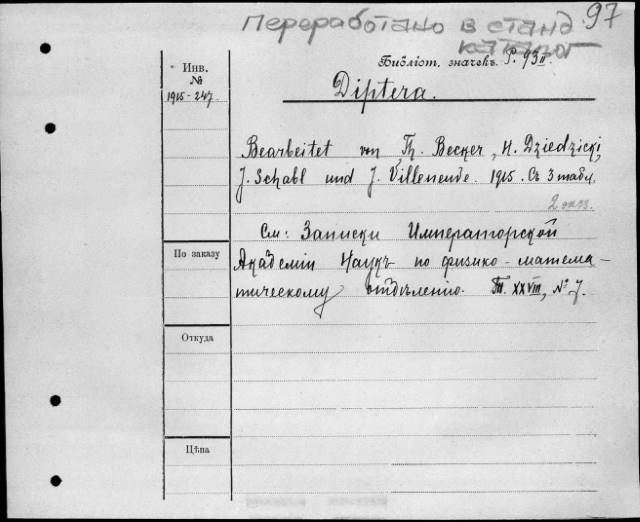 Переработано в станд. 97
каталог
Инв.
№
1915-247.
Библіот. значекъ. P. 93II.
Diptera.
Bearbeitet von Th. Becker, H. Dziedzicki,
J. Schabl und J. Villeneude. 1915. Съ 3 табл.
2 экз.
См: Записки Императорской
Академіи Наукъ по физико-матема-
тическому отдѣленію. Т. XXVIII, № 7.
По заказу
Откуда
Цѣна